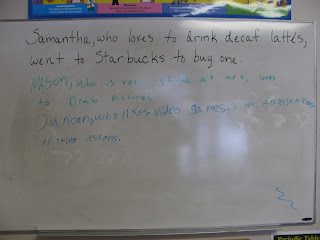 Samantha, who loves to drink decaf lattés,
went to Starbucks to buy one.
Mason, Who is very skilled at art, loves
to Draw pictures
Duncan, who likes video games,
writing lessons.
Periodic Table